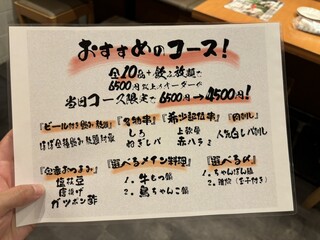 おすすめのコース!
全10品+飲み放題で
6500円以上スタートが
当日コース限定で6500円→4500円!
『ビール付き飲み放題』
ほぼ全種飲み放題対象
『名物串』
しろ
ねぎレバ
『希少部位串』
上軟骨
赤ハラミ
『肉刺し』
人気白レバ刺し
『定番おつまみ』
塩枝豆
唐揚げ
ガツポン酢
『選べるメイン料理』
1. 牛もつ鍋
2. 鳥ちゃんこ鍋
『選べる〆』
1. ちゃんぽん麺
2. 雑炊(玉子付き)